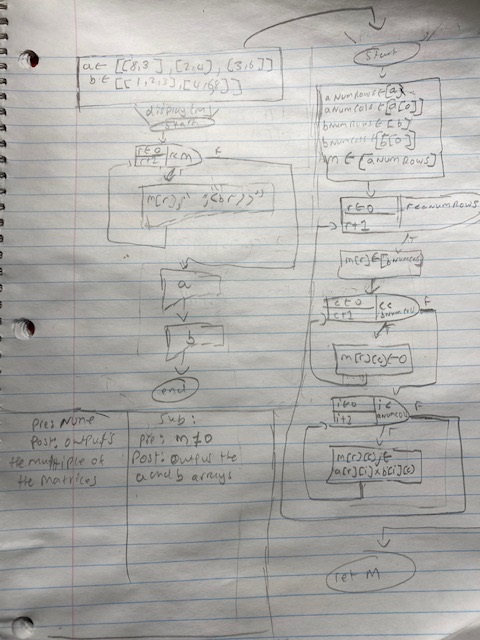 a ← [[8,3],[2,0],[3,6]]
b ← [[1,2,3],[4,6,8]]
display(m)
start
r ← 0
r+1
r<m
F
T
a
b
end
Pre: None
Post: outputs
the multiple of
the matrices
Sub:
Pre: m≠0
Post: output the
a and b arrays
Start
aNumRows ← [a]
aNumCols ← [a[0]]
bNumRows ← [b]
bNumCols ← [b[0]]
m ← [aNumRows]
r ← 0
r+1
r<aNumRows
T
m[r] ← [bNumCols]
c ← 0
c+1
c<
bNumCols
F
T
m[r][c] ← 0
i ← 0
i+1
i<
aNumCols
F
T
m[r][c] ←
a[r][i]×b[i][c]
ret M